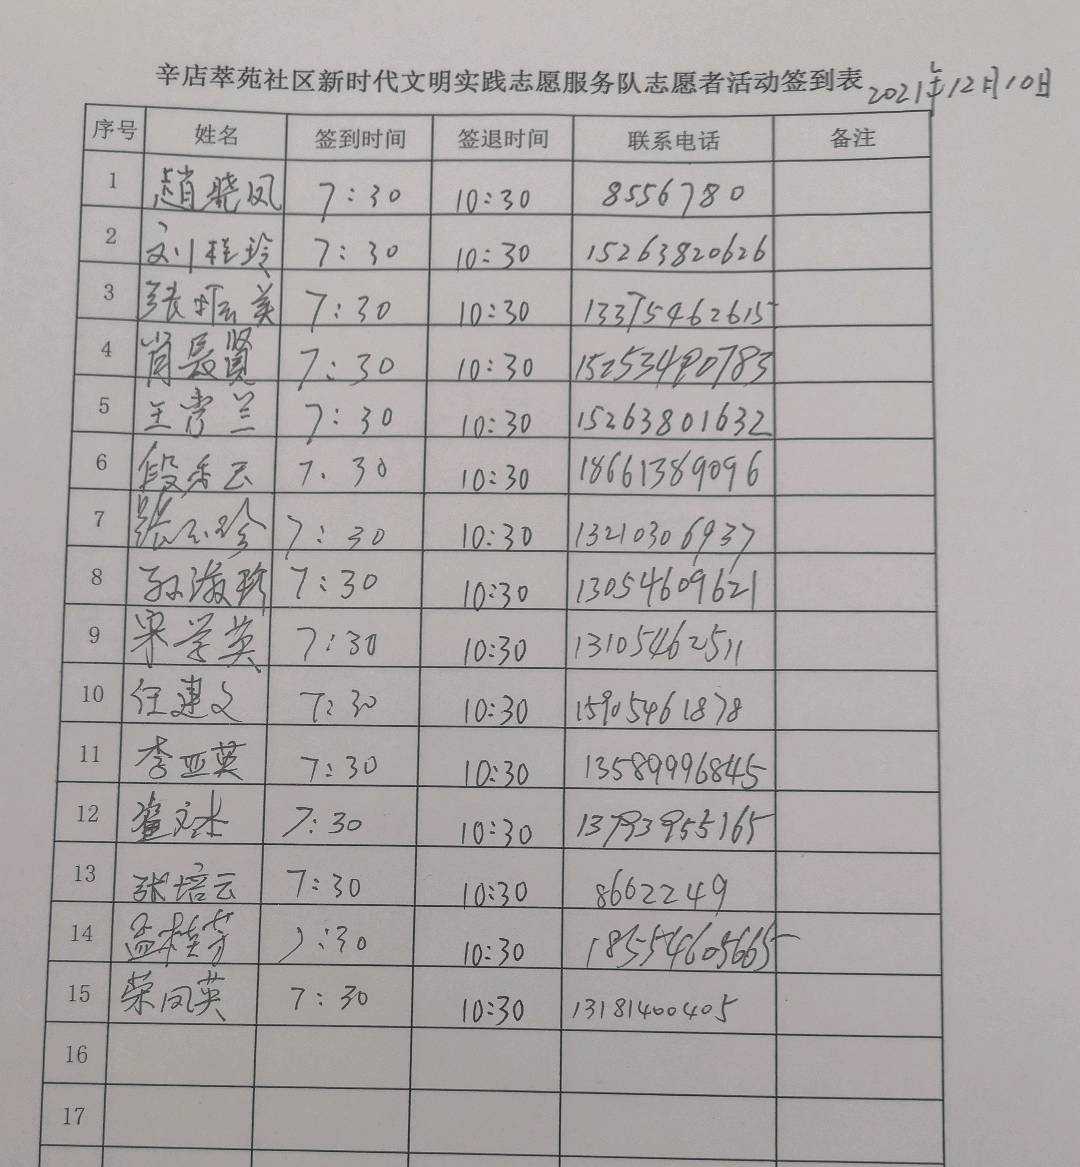 辛店萃苑社区新时代文明实践志愿服务队志愿者活动签到表 2021年12月10日
序号 姓名 签到时间 签退时间 联系电话 备注
1 赵晓凤 7:30 10:30 8556780
2 刘桂玲 7:30 10:30 15263820626
3 张 美 7:30 10:30 13375462615
4 肖 贤 7:30 10:30 15253490783
5 王 兰 7:30 10:30 15263801632
6 段秀云 7:30 10:30 18661389096
7 张 珍 7:30 10:30 13210306937
8 孙淑珍 7:30 10:30 13054609621
9 宋学英 7:30 10:30 13105462511
10 任建文 7:30 10:30 15905461878
11 李亚英 7:30 10:30 13589996845
12 文 7:30 10:30 13793955165
13 张培云 7:30 10:30 8602249
14 孟桂芳 7:30 10:30 18554605665
15 荣凤英 7:30 10:30 13181400405
16
17